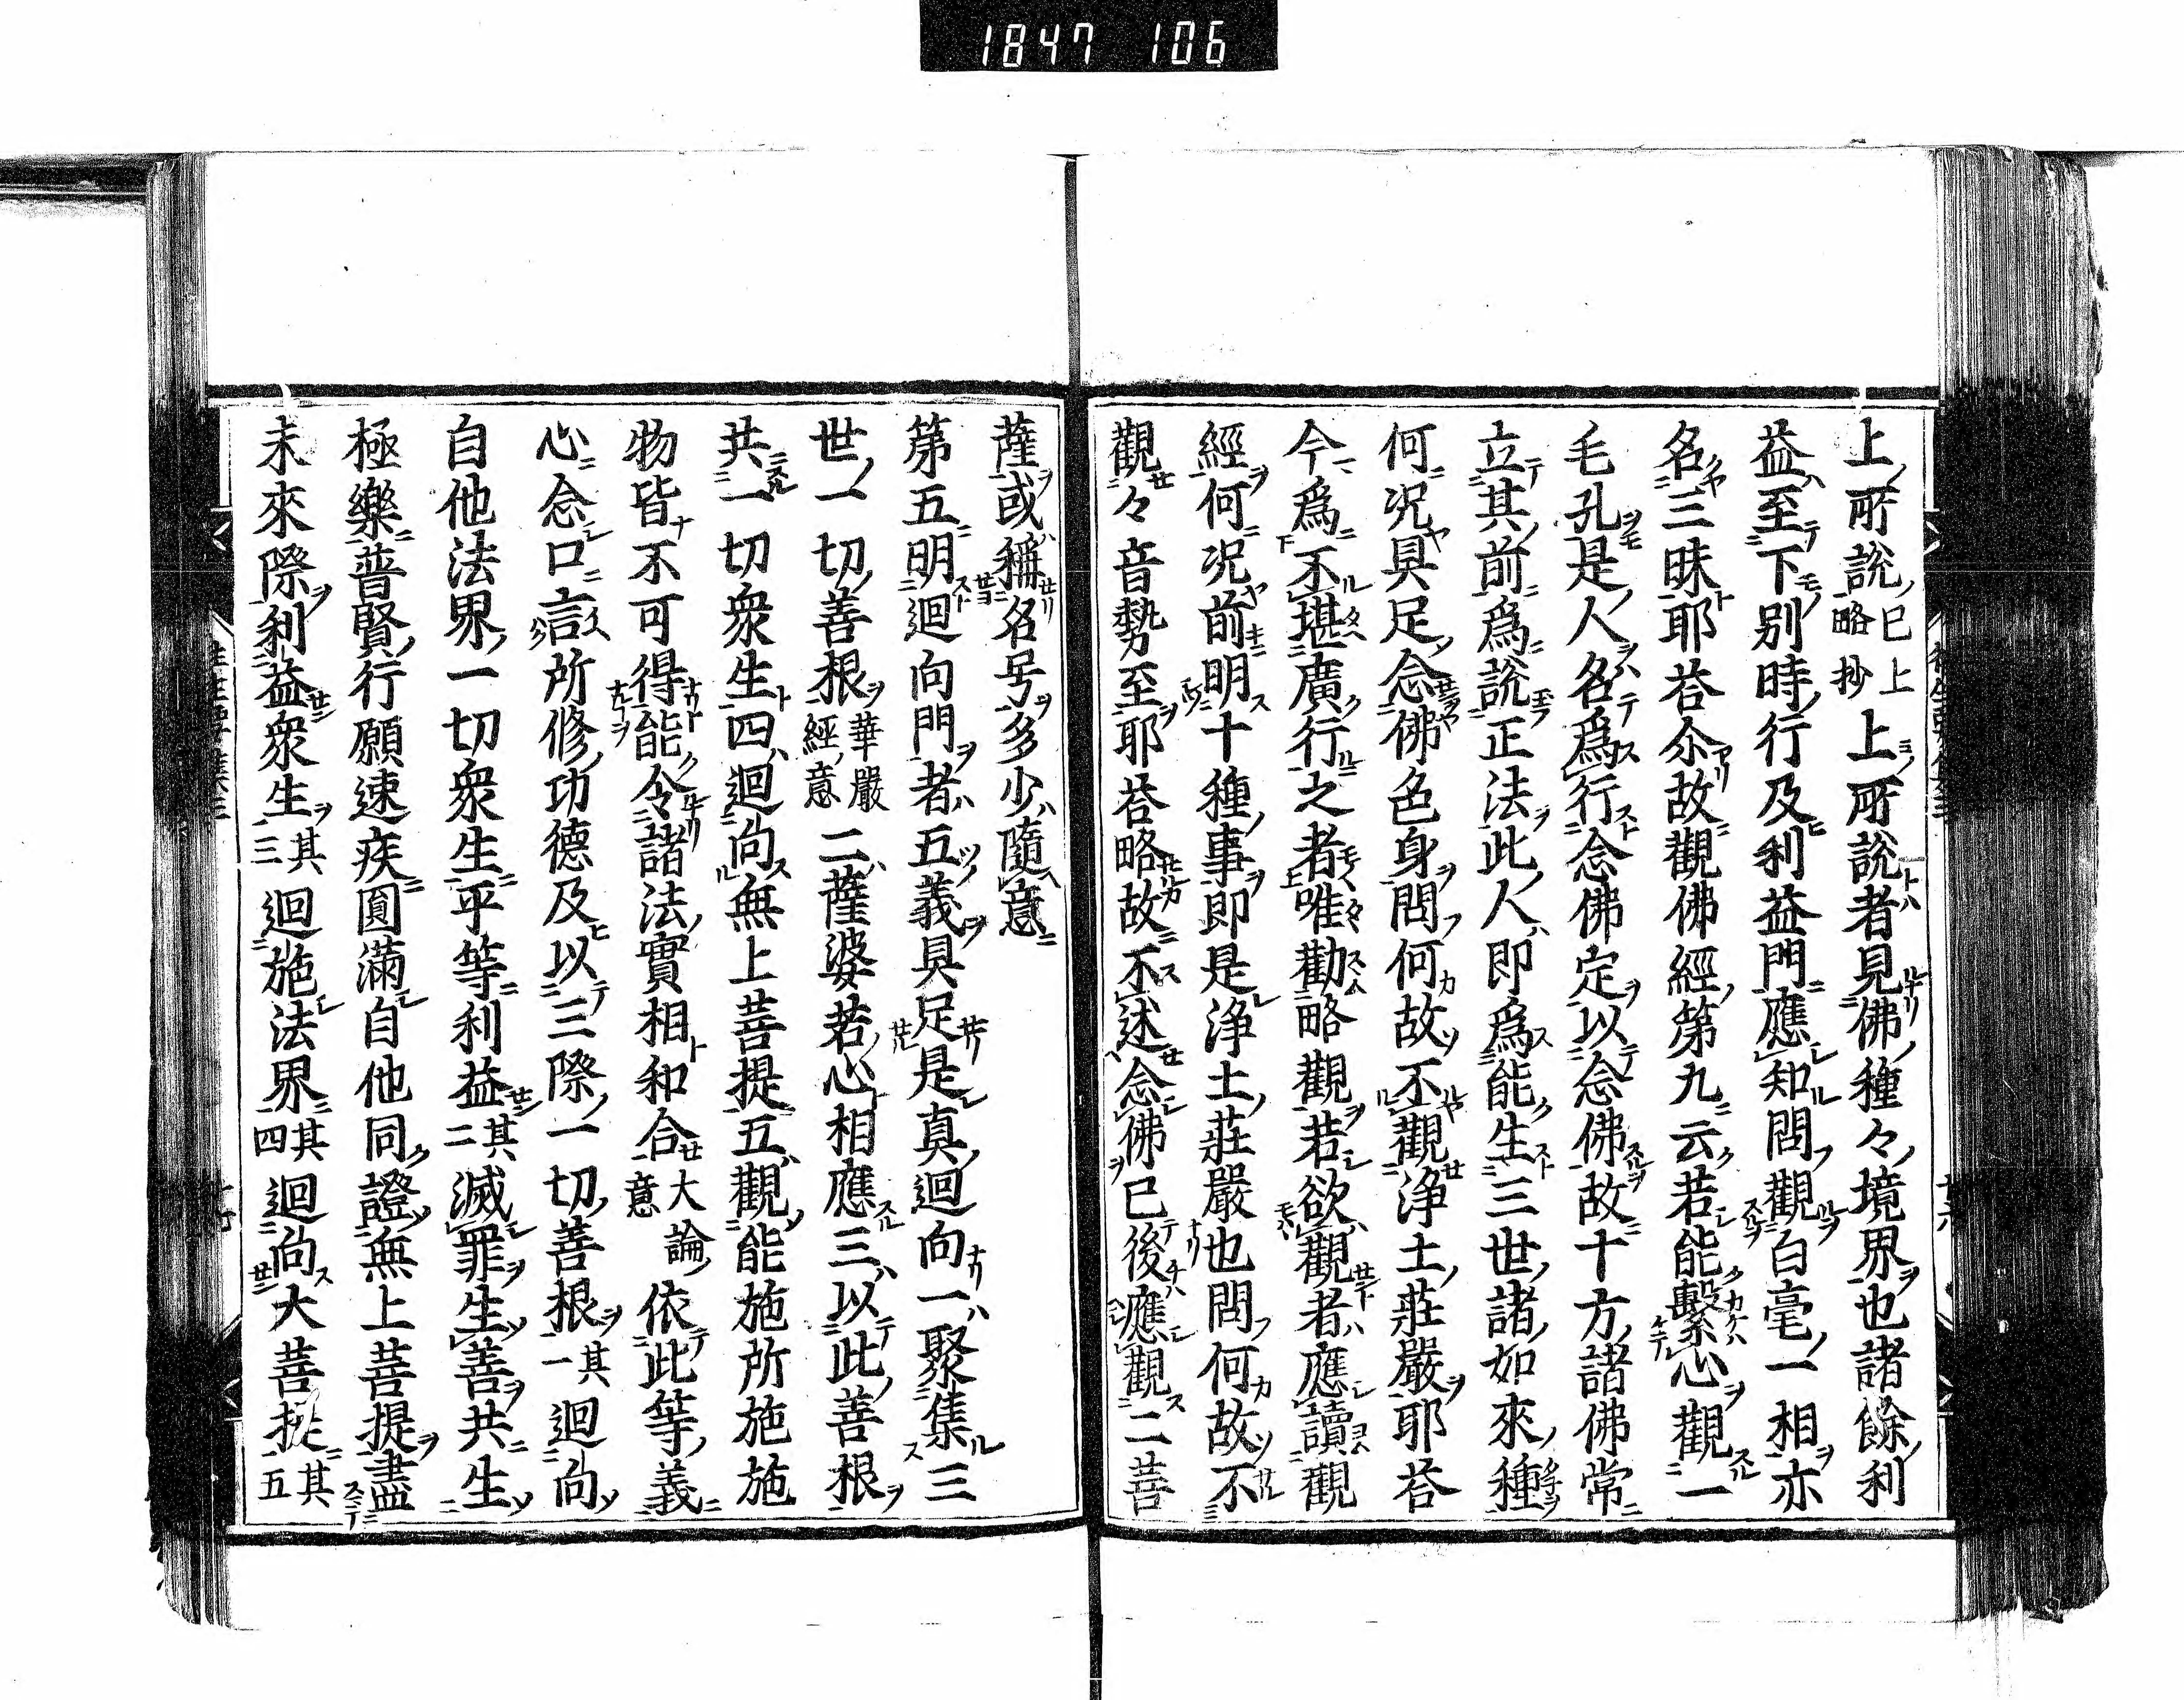 1847 106
上所説已上略抄上所説者見佛種々境界也諸餘利
益至下别時行及利益門應知問觀白毫一相亦
名三昧耶荅尒故觀佛經第九云若能繫心觀一
毛孔是人名爲行念佛定以念佛故十方諸佛常
立其前爲説正法此人即爲能生三世諸如來種
何况具足念佛色身問何故不觀浄土莊嚴耶荅
今爲不堪廣行之者唯勸略觀若欲觀者應讀觀
經何况前明十種事即是浄土莊嚴也問何故不
觀々音勢至耶荅略故不述念佛已後應觀二菩
薩或稱名号多少隨意
第五明迴向門者五義具足是真迴向一聚集三
世一切善根華嚴經意二薩婆若心相應三以此善根
共一切衆生四迴向無上菩提五觀能施所施施
物皆不可得能令諸法實相和合大論意依此等義
心念口言所修功德及以三際一切善根其一迴向
自他法界一切衆生平等利益其二滅罪生善共生
極樂普賢行願速疾圓滿自他同證無上菩提盡
未來際利益衆生其三迴施法界其四迴向大菩提其五